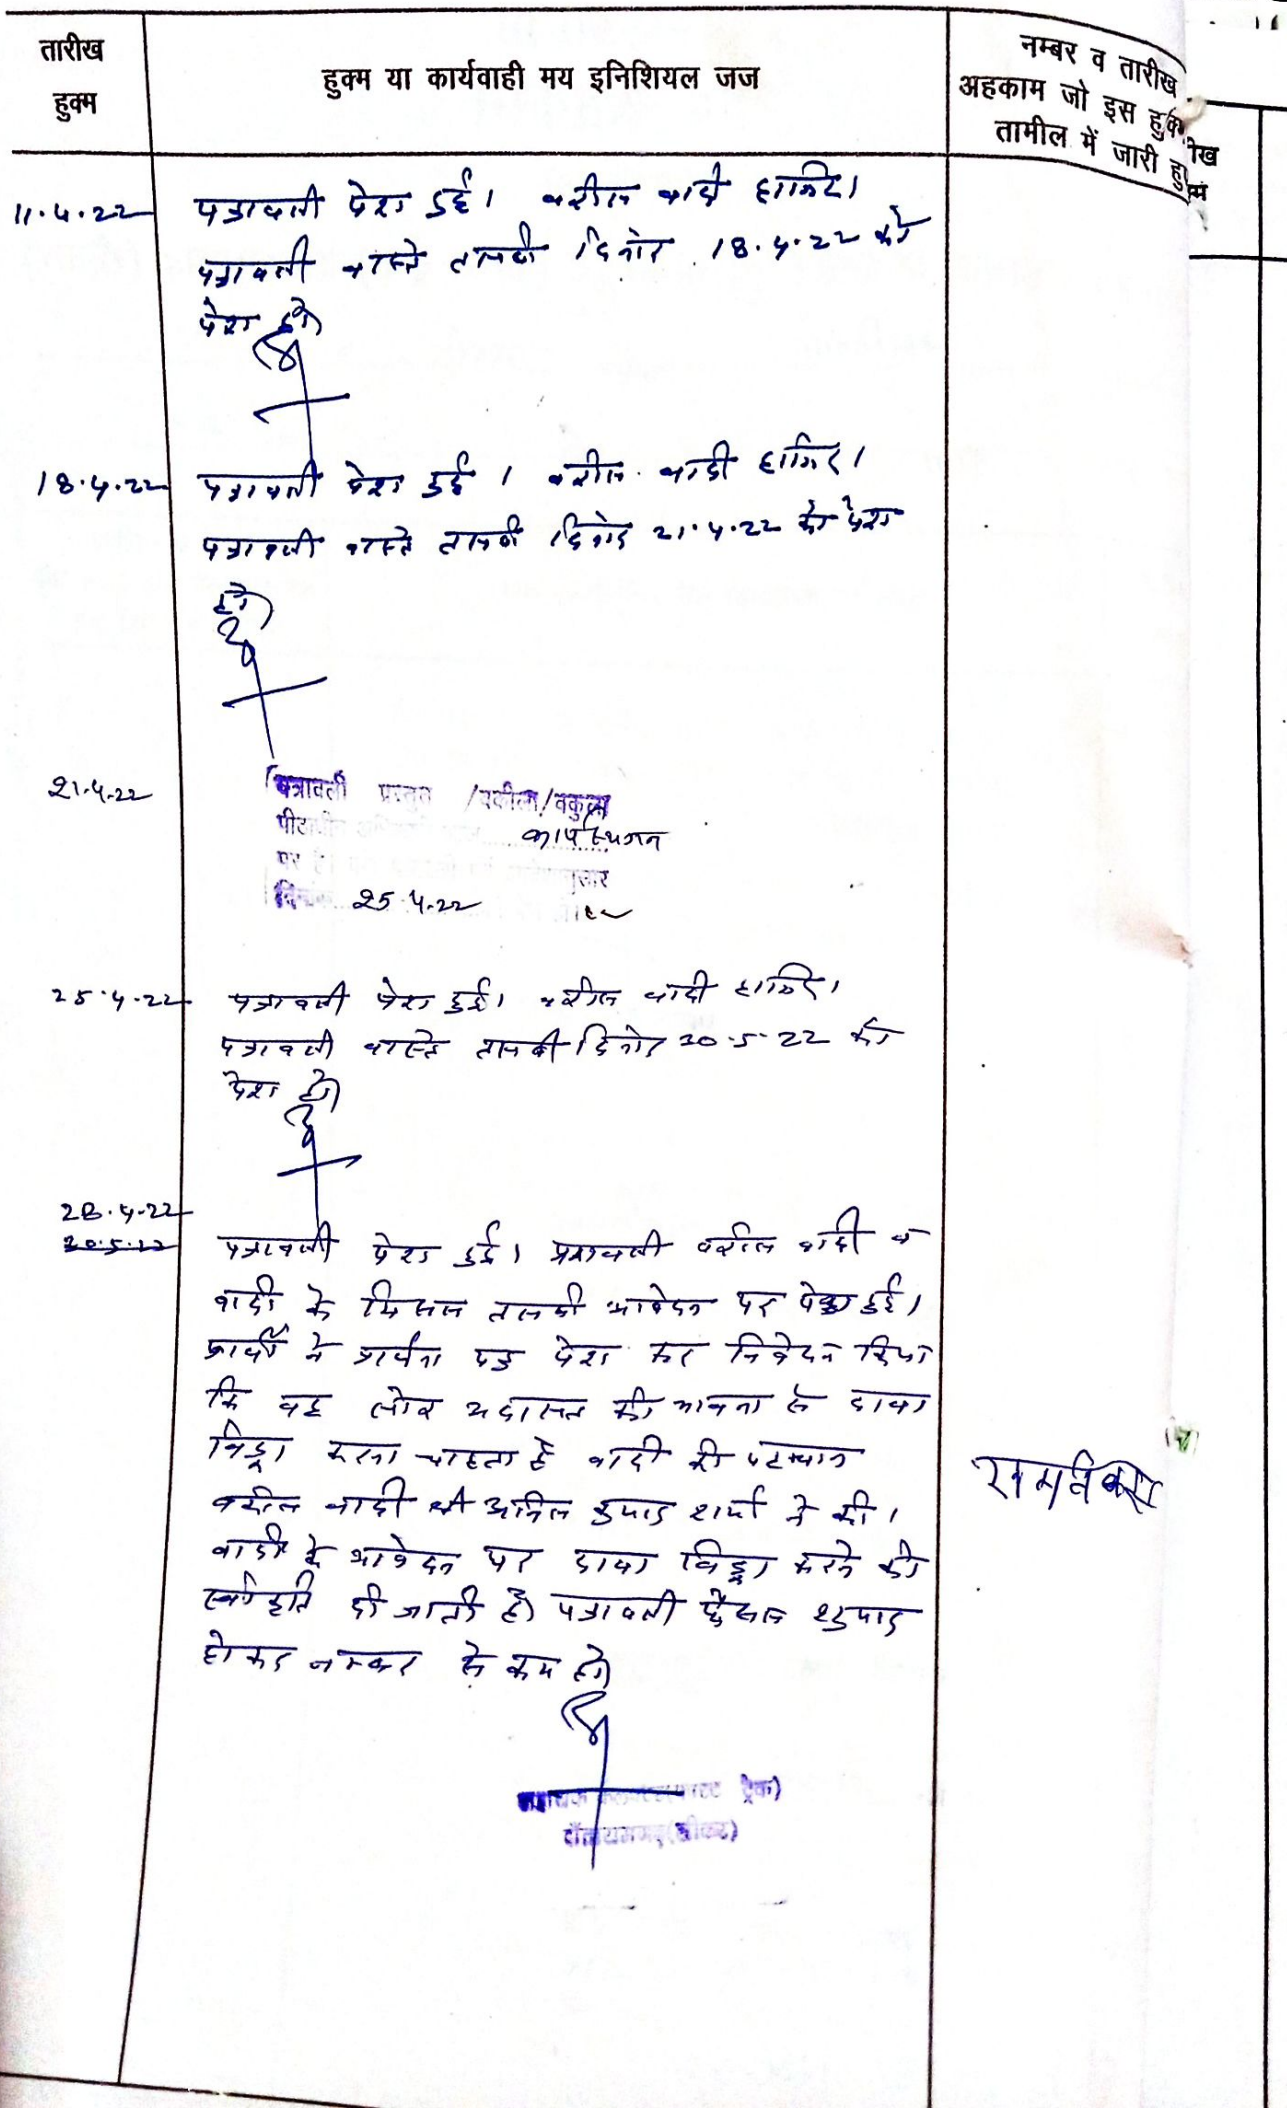 तारीख
हुक्म
हुक्म या कार्यवाही मय इनिशियल जज
नम्बर व तारीख
अहकाम जो इस हुक्म
तामील में जारी हु
11.4.22 पत्रावली पेश हुई। वकील वादी हाजिर।
पत्रावली वास्ते तलबी दिनांक 18.4.22 को
पेश हो
18.4.22 पत्रावली पेश हुई। वकील वादी हाजिर।
पत्रावली वास्ते तलबी दिनांक 21.4.22 को पेश
हो
21.4.22 पत्रावली प्रस्तुत /वकील/वकुला
कार्य स्थगन
पर
दिनांक 25.4.22
25.4.22 पत्रावली पेश हुई। वकील वादी हाजिर।
पत्रावली वास्ते तलबी दिनांक 20.5.22 को
पेश हो
28.4.22
20.5.22
पत्रावली पेश हुई। पत्रावली वकील वादी व
वादी के मिसल तलबी आवेदन पर पेश हुई।
प्रार्थी ने प्रार्थना पत्र पेश कर निवेदन किया
कि वह लोक अदालत की भावना से दावा
विड्रा करना चाहता है वादी की पहचान
वकील वादी श्री अनिल कुमार शर्मा ने की।
वादी के आवेदन पर दावा विड्रा करने की
स्वीकृति दी जाती है। पत्रावली फैसल शुमार
होकर नम्बर से कम हो
ट्रैक)
(सीकर)